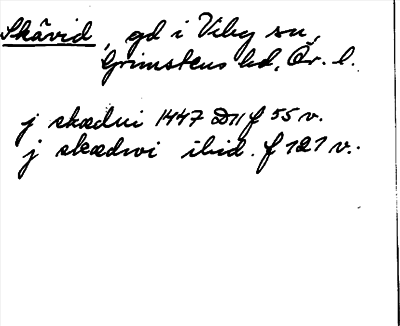 Skåvid, gd i Viby sn,
Grimstens hd, Ör. l.
j skædui 1447 D11 f 55 v.
j skædwi ibid. f 121 v.